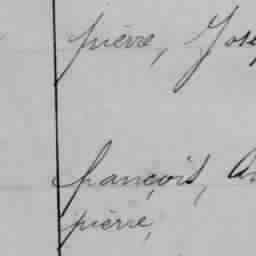 pierre, Jose
françois, An
pierre,